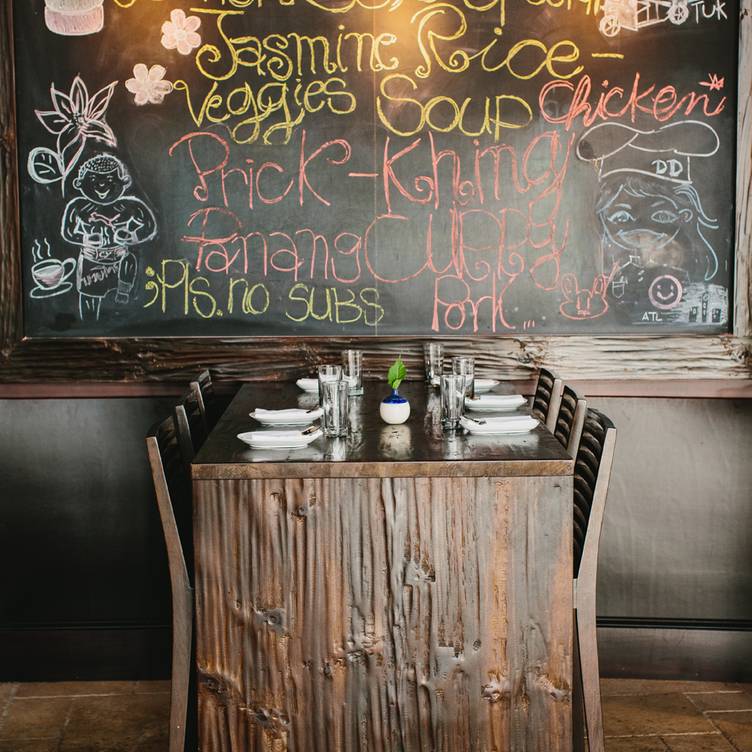 TUK
Jasmine Rice -
Veggies Soup Chicken
Prick-Khing
Panang Curry
;Pls. no subs Pork...
DD
ATL